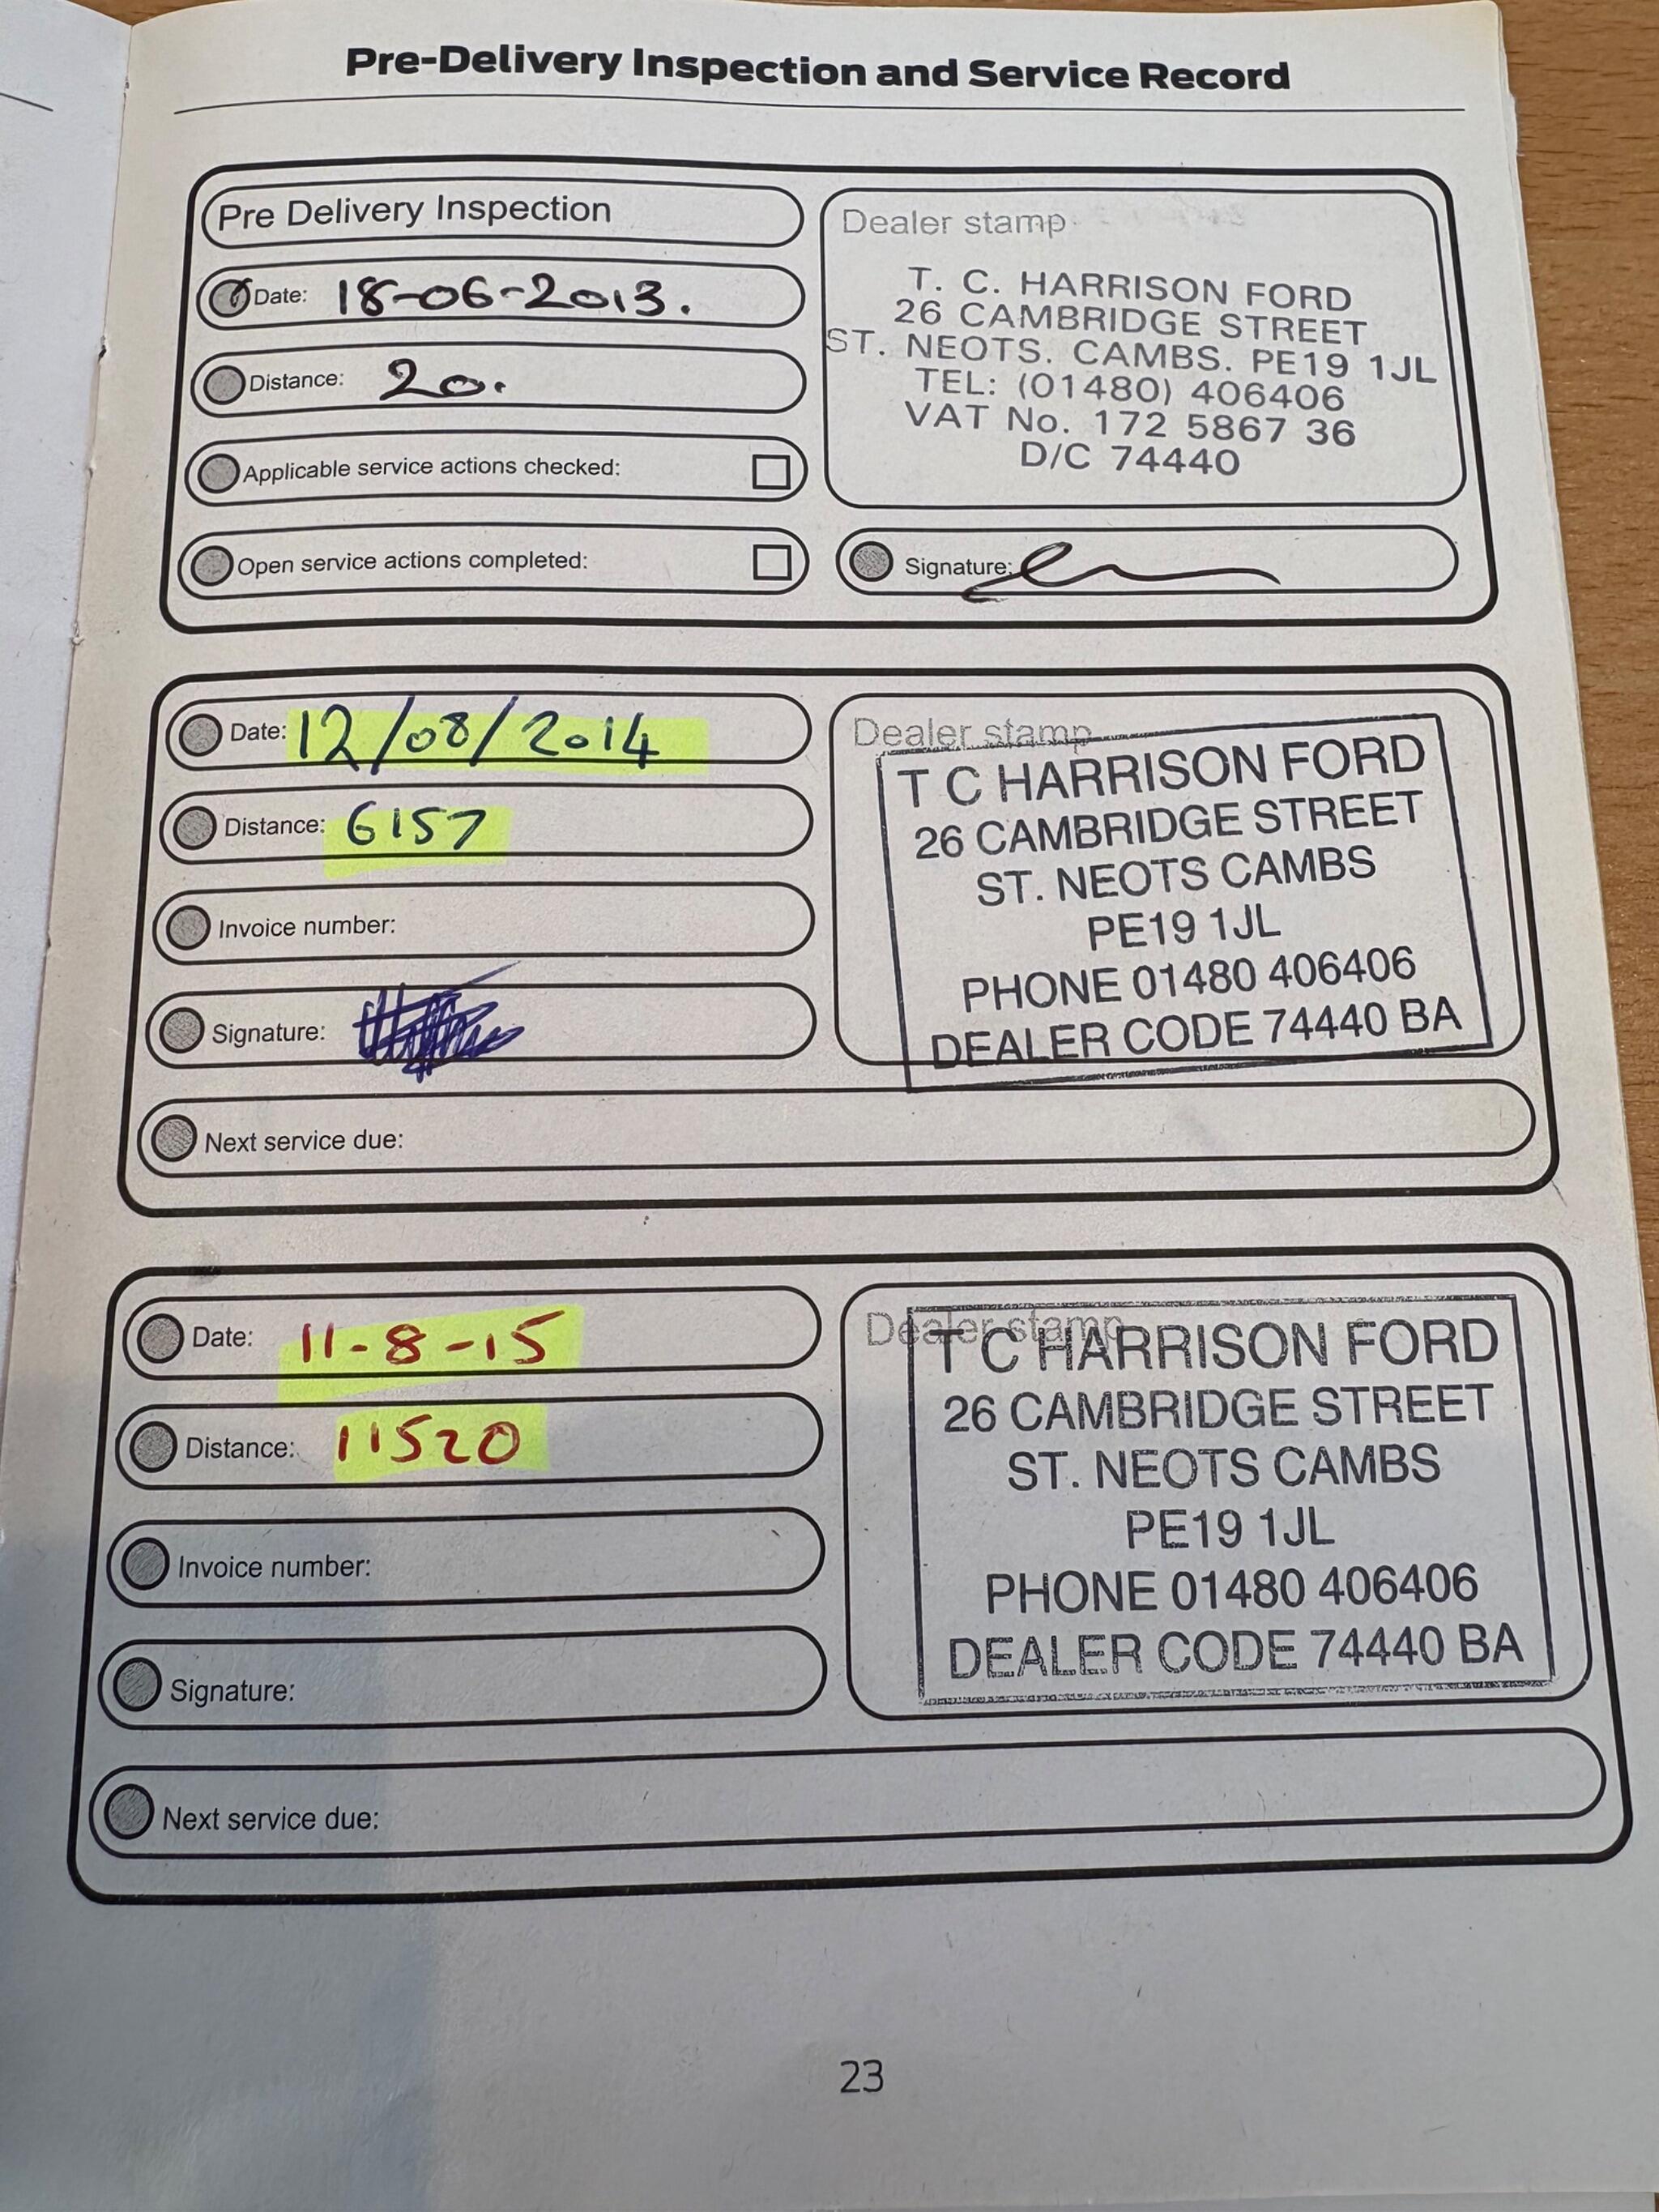 Pre-Delivery Inspection and Service Record
Pre Delivery Inspection
Date: 18-06-2013.
Distance: 20.
Applicable service actions checked:
Open service actions completed:
Dealer stamp
T. C. HARRISON FORD
26 CAMBRIDGE STREET
ST. NEOTS. CAMBS. PE19 1JL
TEL: (01480) 406406
VAT No. 172 5867 36
D/C 74440
Signature:
Date: 12/08/2014
Distance: 6157
Invoice number:
Signature:
Dealer stamp
T C HARRISON FORD
26 CAMBRIDGE STREET
ST. NEOTS CAMBS
PE19 1JL
PHONE 01480 406406
DEALER CODE 74440 BA
Next service due:
Date: 11-8-15
Distance: 11520
Invoice number:
Signature:
Dealer stamp
T C HARRISON FORD
26 CAMBRIDGE STREET
ST. NEOTS CAMBS
PE19 1JL
PHONE 01480 406406
DEALER CODE 74440 BA
Next service due:
23